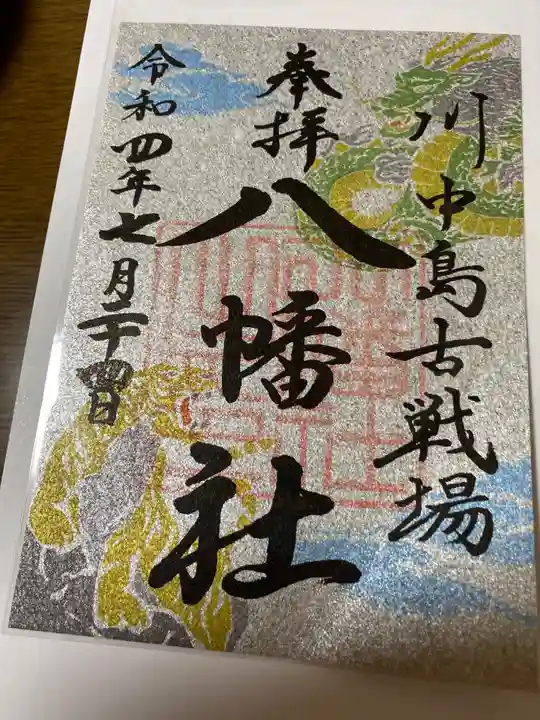 川中島古戦場
奉拝
八幡社
令和四年七月二十四日